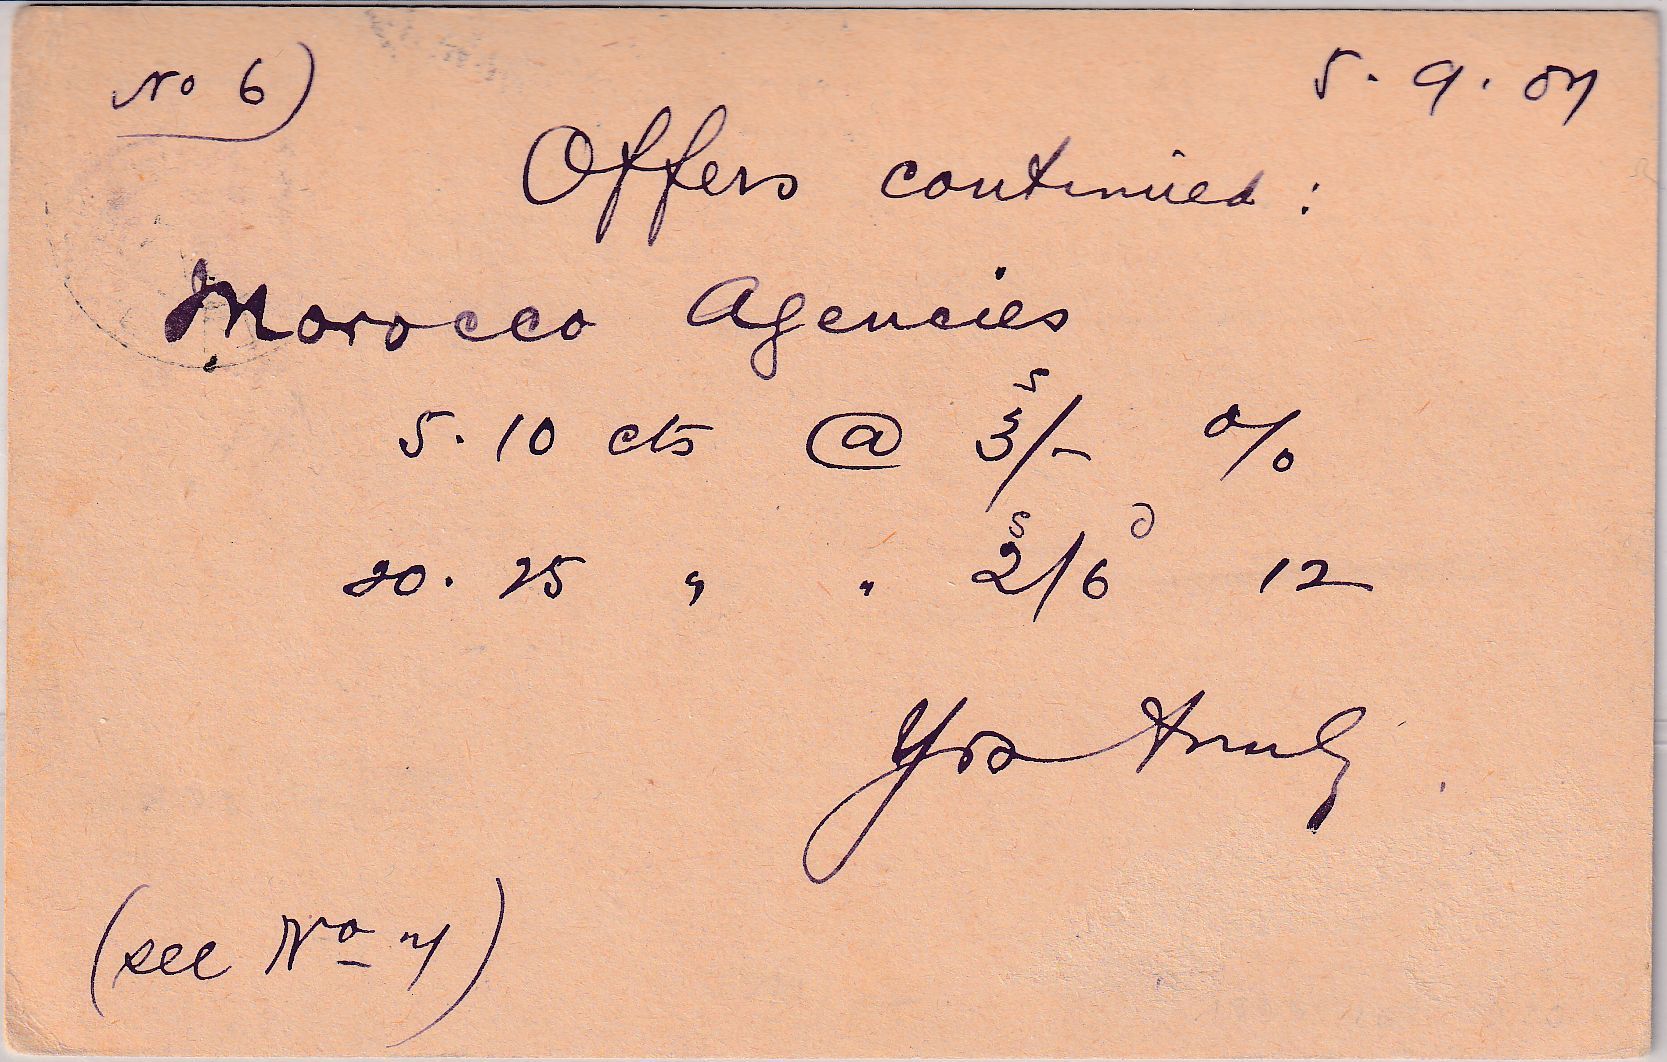 No 6)
5.9.07
Offers continued:
Morocco Agencies
5.10 cts @ 3s/- %
20.25 " " 2s/6d 12
Yrs truly
(see No 7)